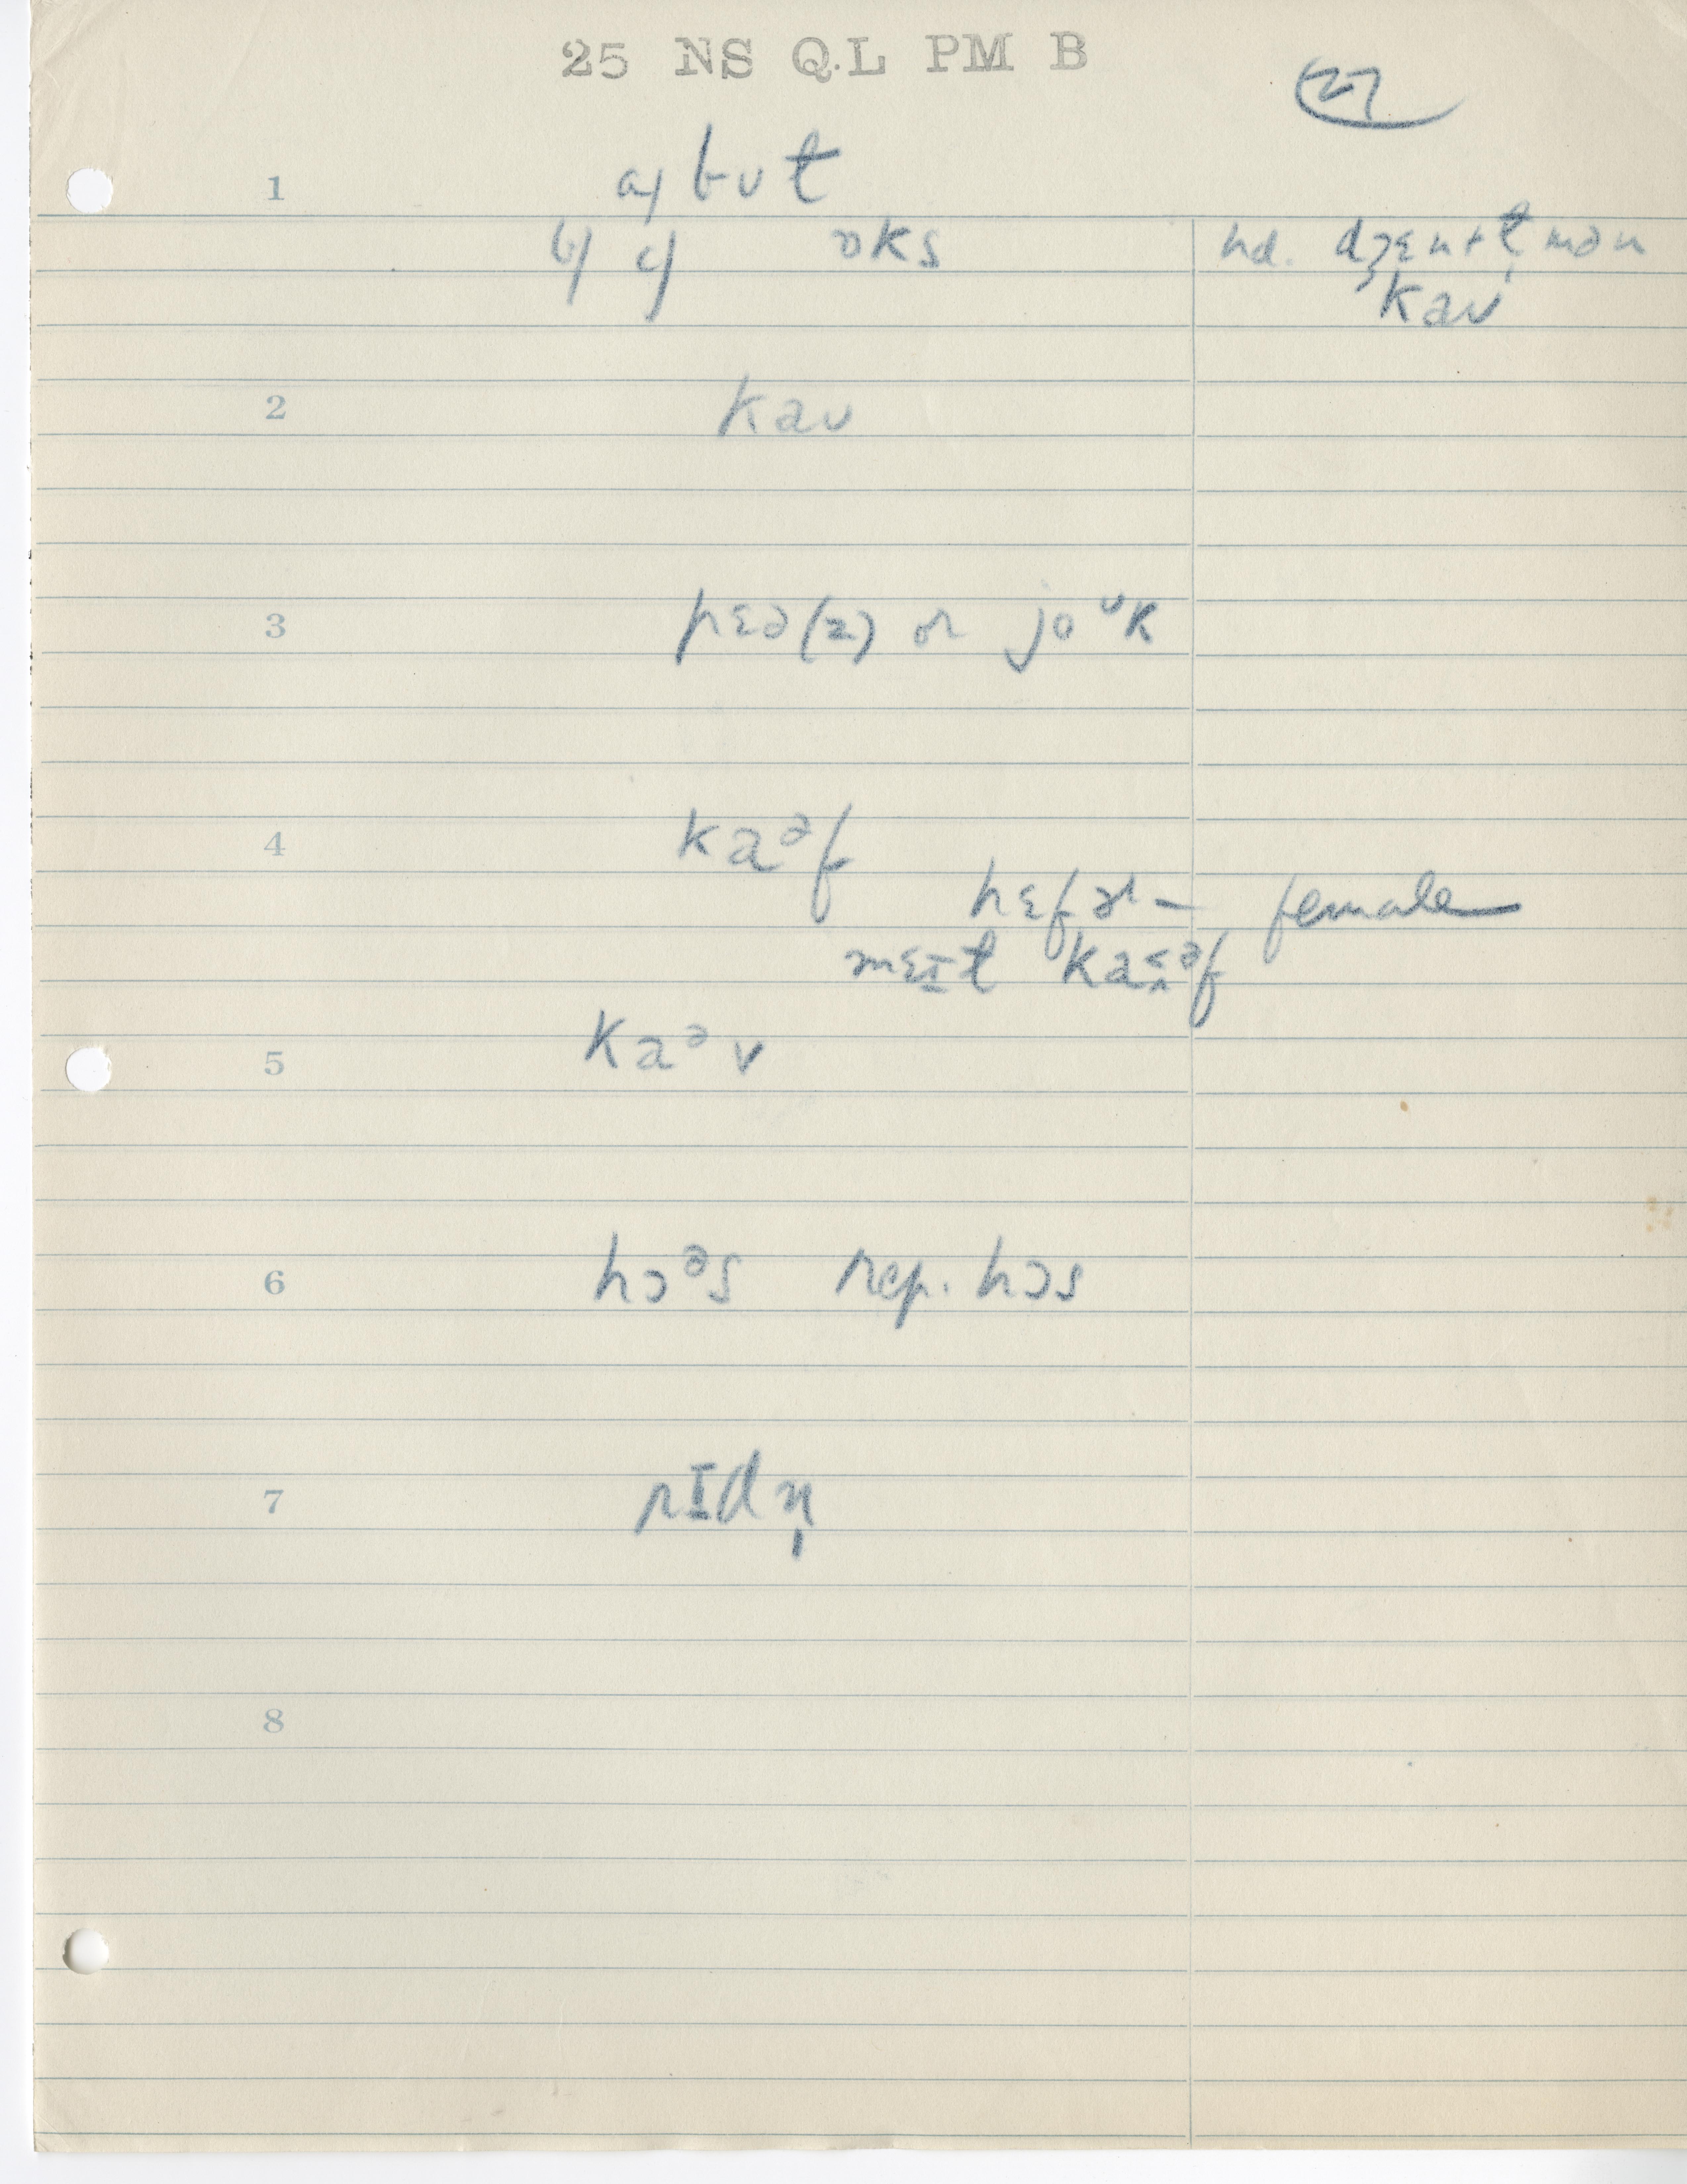 25 NS QL PM B
27
1 a) bʊt
b) c) ɒks hd. dʒɛntl̩mən
kaʊ
2 kaʊ
3 pɛə(z) or joᵘk
4 kaᵊf
hɛfɚ — female
mɛɪt kaᵊf
5 kaᵊv
6 hɔᵊs rep. hɔs
7 rɪdn̩
8